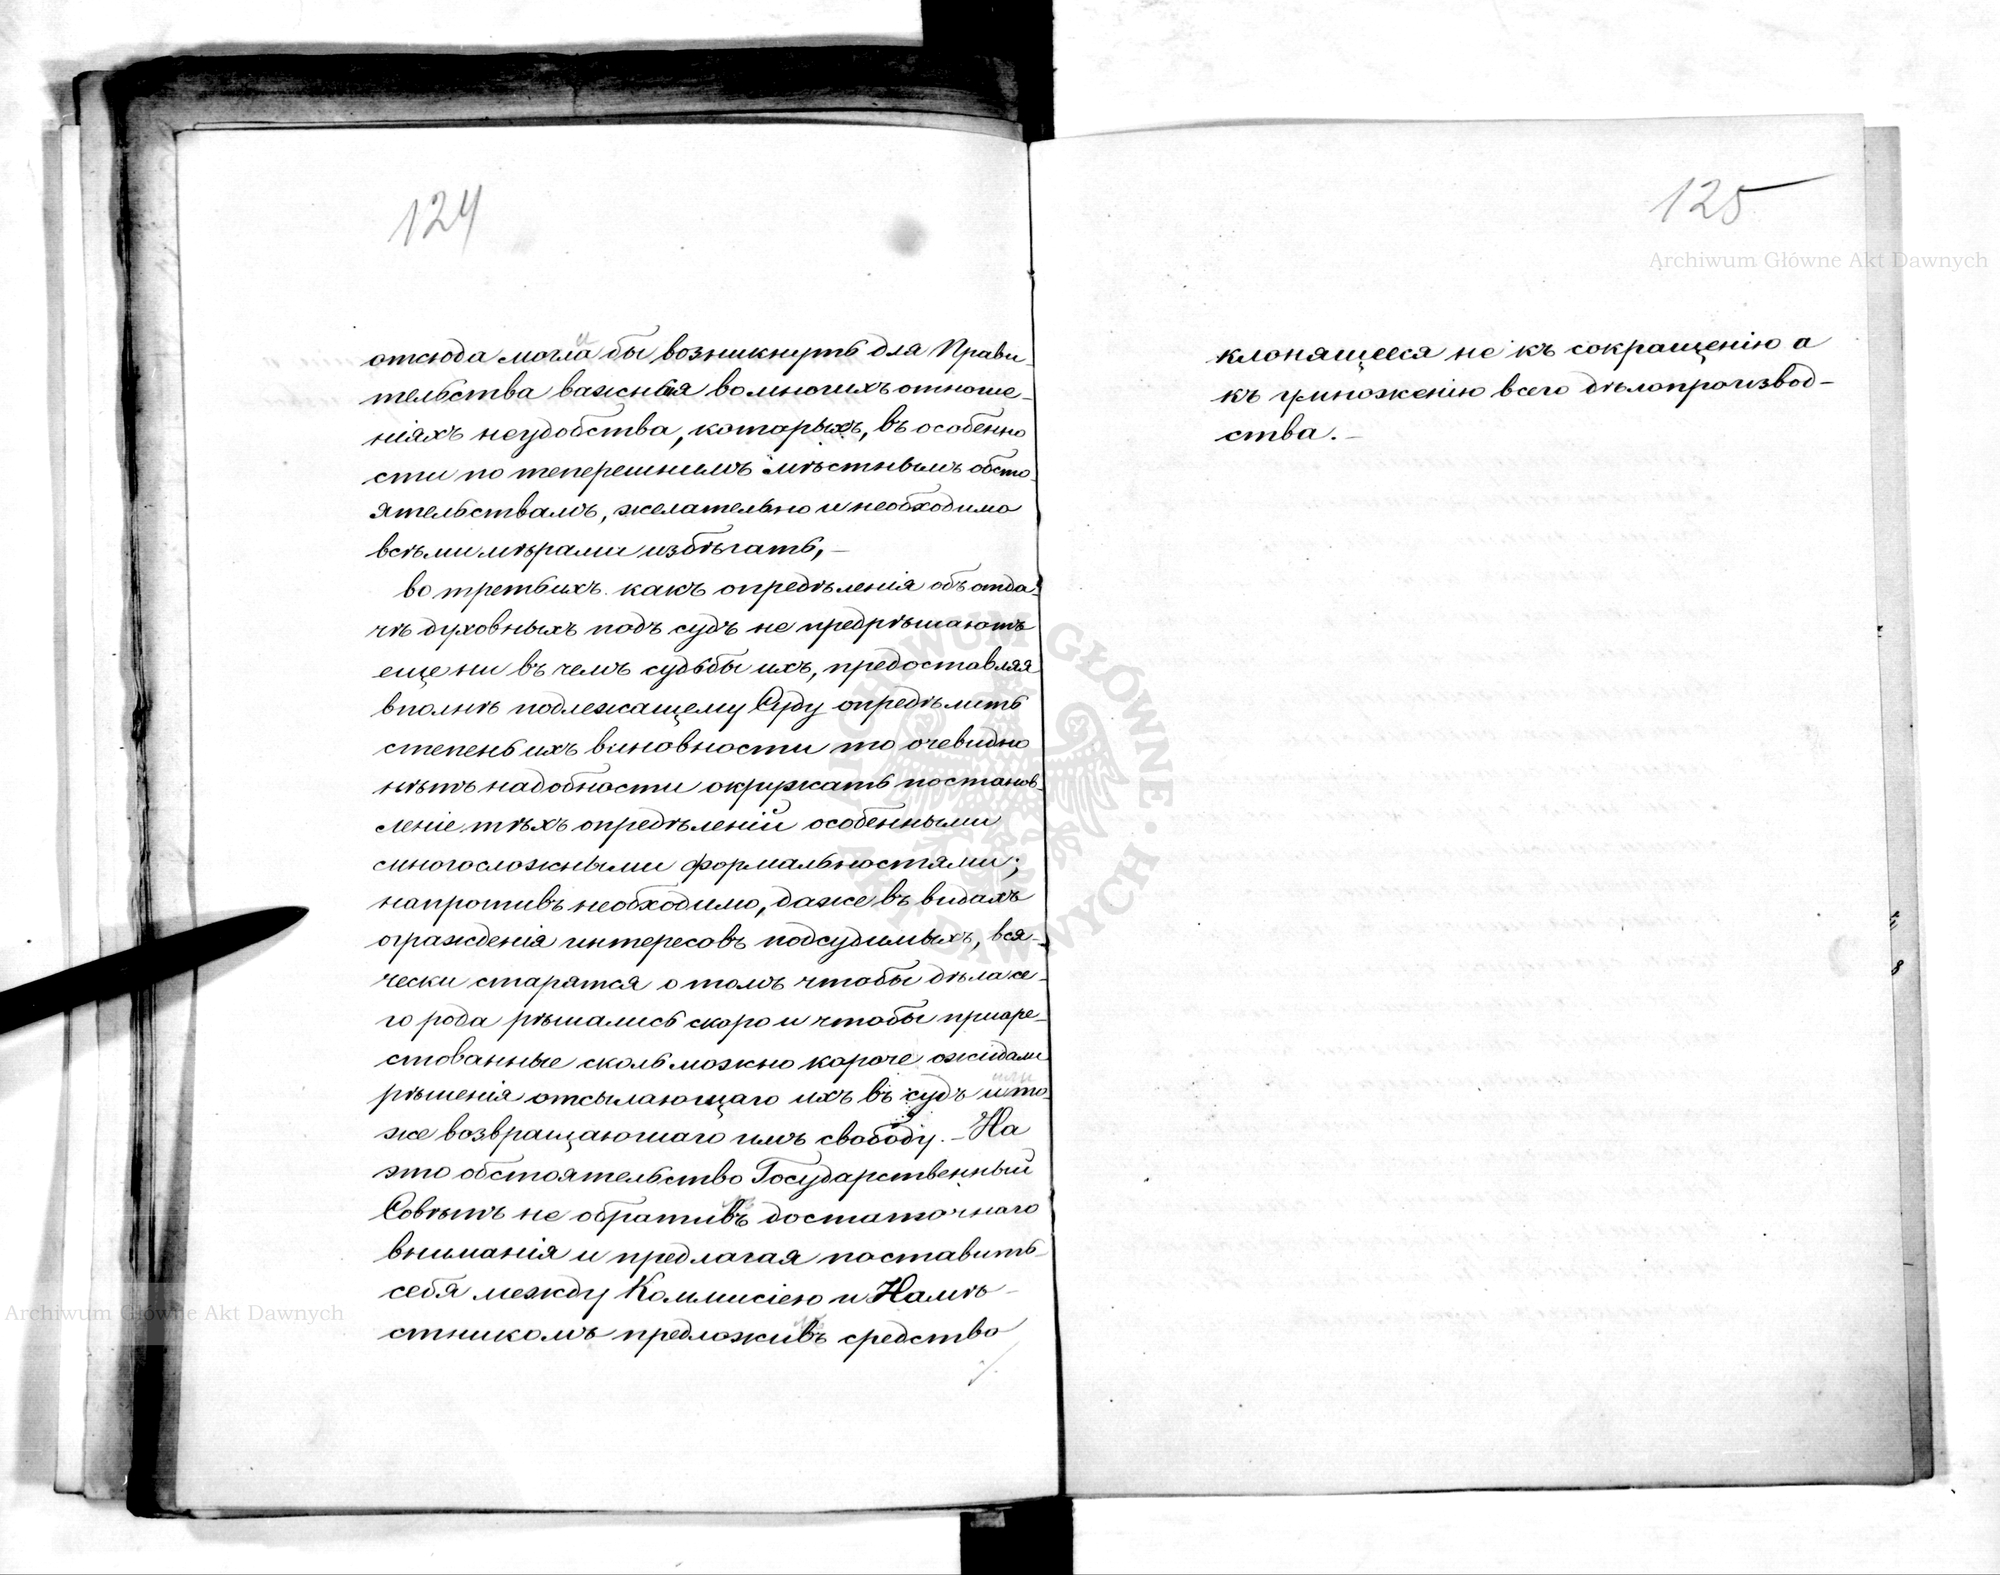 124
отсюда могла бы возникнуть для Прави-
тельства важныя во многихъ отноше-
ніяхъ неудобства, которыхъ, въ особенно
сти по теперешнимъ мѣстнымъ обсто-
ятельствамъ, желательно и необходимо
всѣми мѣрами избѣгать, —
во третьихъ какъ опредѣленія объ отда-
чѣ духовныхъ подъ судъ не предрѣшаютъ
еще ни въ чемъ судьбы ихъ, предоставляя
вполнѣ подлежащему Суду опредѣлить
степень ихъ виновности то очевидно
нѣтъ надобности окружать постанов-
леніе тѣхъ опредѣленій особенными
многосложными формальностями;
напротивъ необходимо, даже въ видахъ
огражденія интересовъ подсудимыхъ, вся-
чески старятся о томъ чтобы дѣла се-
го рода рѣшались скоро и чтобы приаре-
стованные сколь можно короче ожидали
рѣшенія отсылающаго ихъ въ судъ или то-
же возвращающаго имъ свободу. — На
это обстоятельство Государственный
Совѣтъ не обративъ достаточнаго
вниманія и предлагая поставить
себя между Коммисіею и Намѣ-
стникомъ предложивъ средство
./.
125
клонящееся не къ сокращенію а
къ умноженію всего дѣлопроизвод-
ства. —
Archiwum Główne Akt Dawnych
Archiwum Główne Akt Dawnych